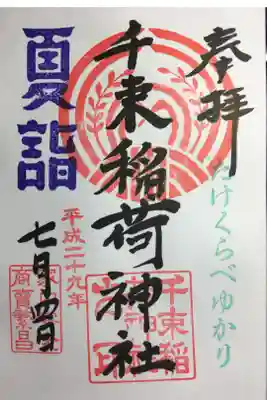 奉拝
たけくらべゆかり
千束稲荷神社
夏詣
平成二十九年
七月四日
千束稲
商売繁昌